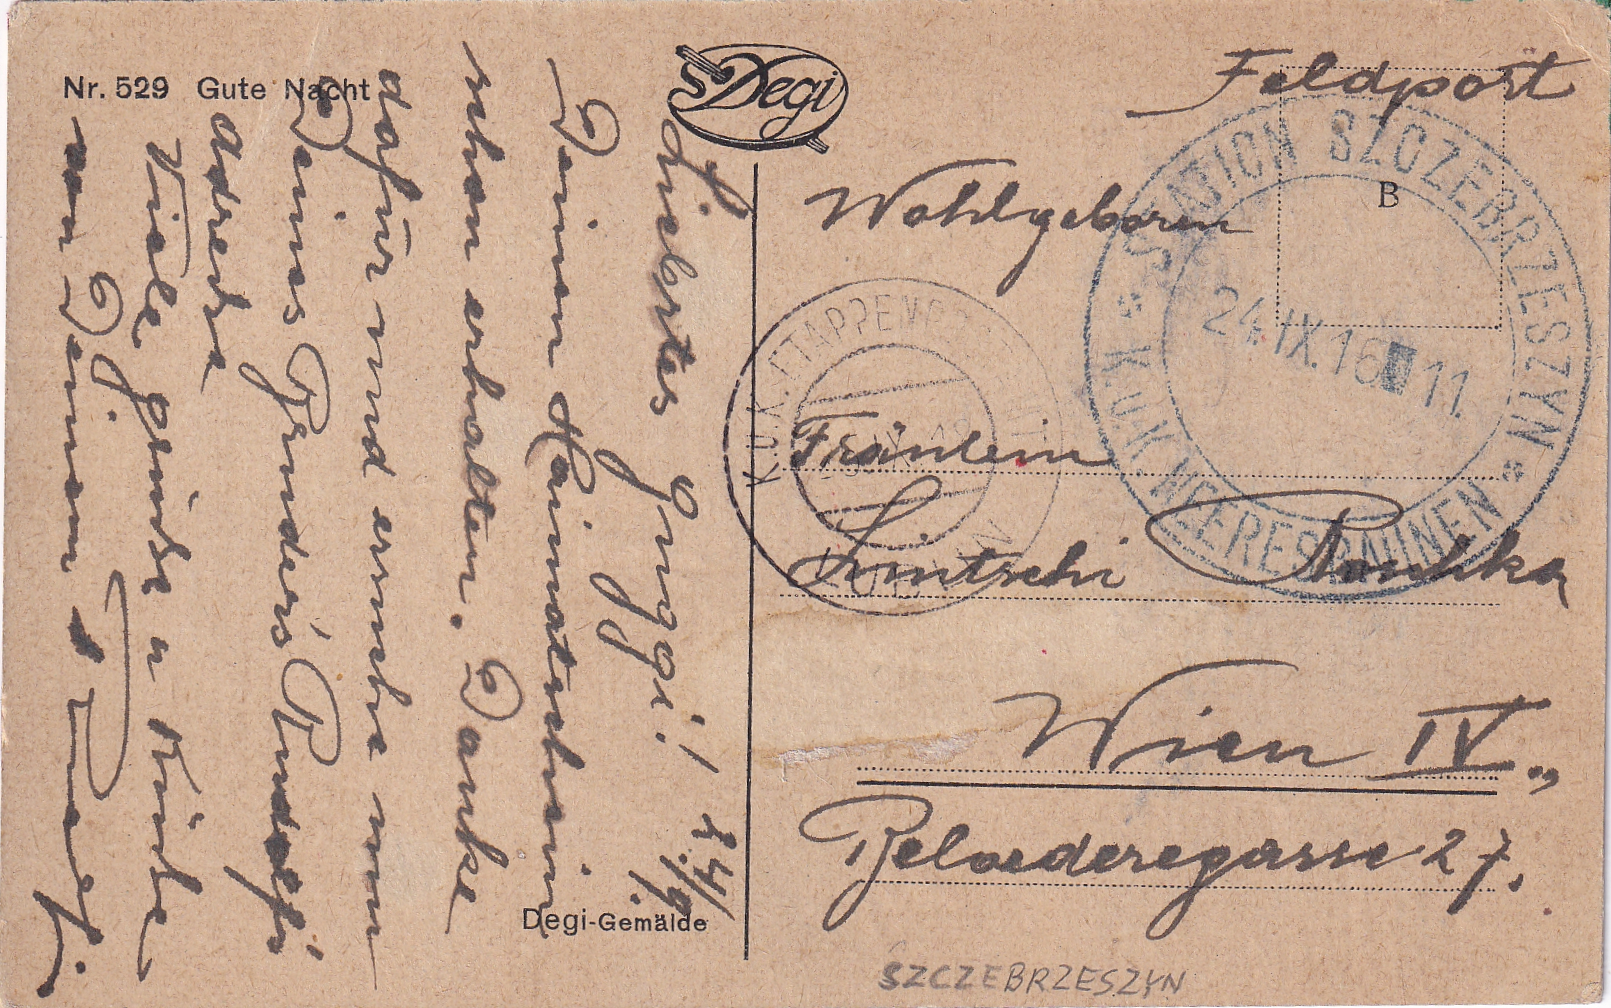 Nr. 529 Gute Nacht
Degi
Feldpost
B
Wohlgeboren
Fräulein
Lintschi
Wien IV.,
Belvederegasse 27.
STATION SZCZEBRZESZYN
24. IX. 16 11.
K.U.K. HEERESBAHNEN
K.U.K. ETAPPENPOSTAMT
LUBLIN
24/9.
Liebstes Guggi!
Deinen Heimatschein
schon erhalten. Danke
dafür und ersuche um
Deines Bruders Rudolfs
Adresse
Viele Grüße u Küße
von Deinem
Degi-Gemälde
SZCZEBRZESZYN